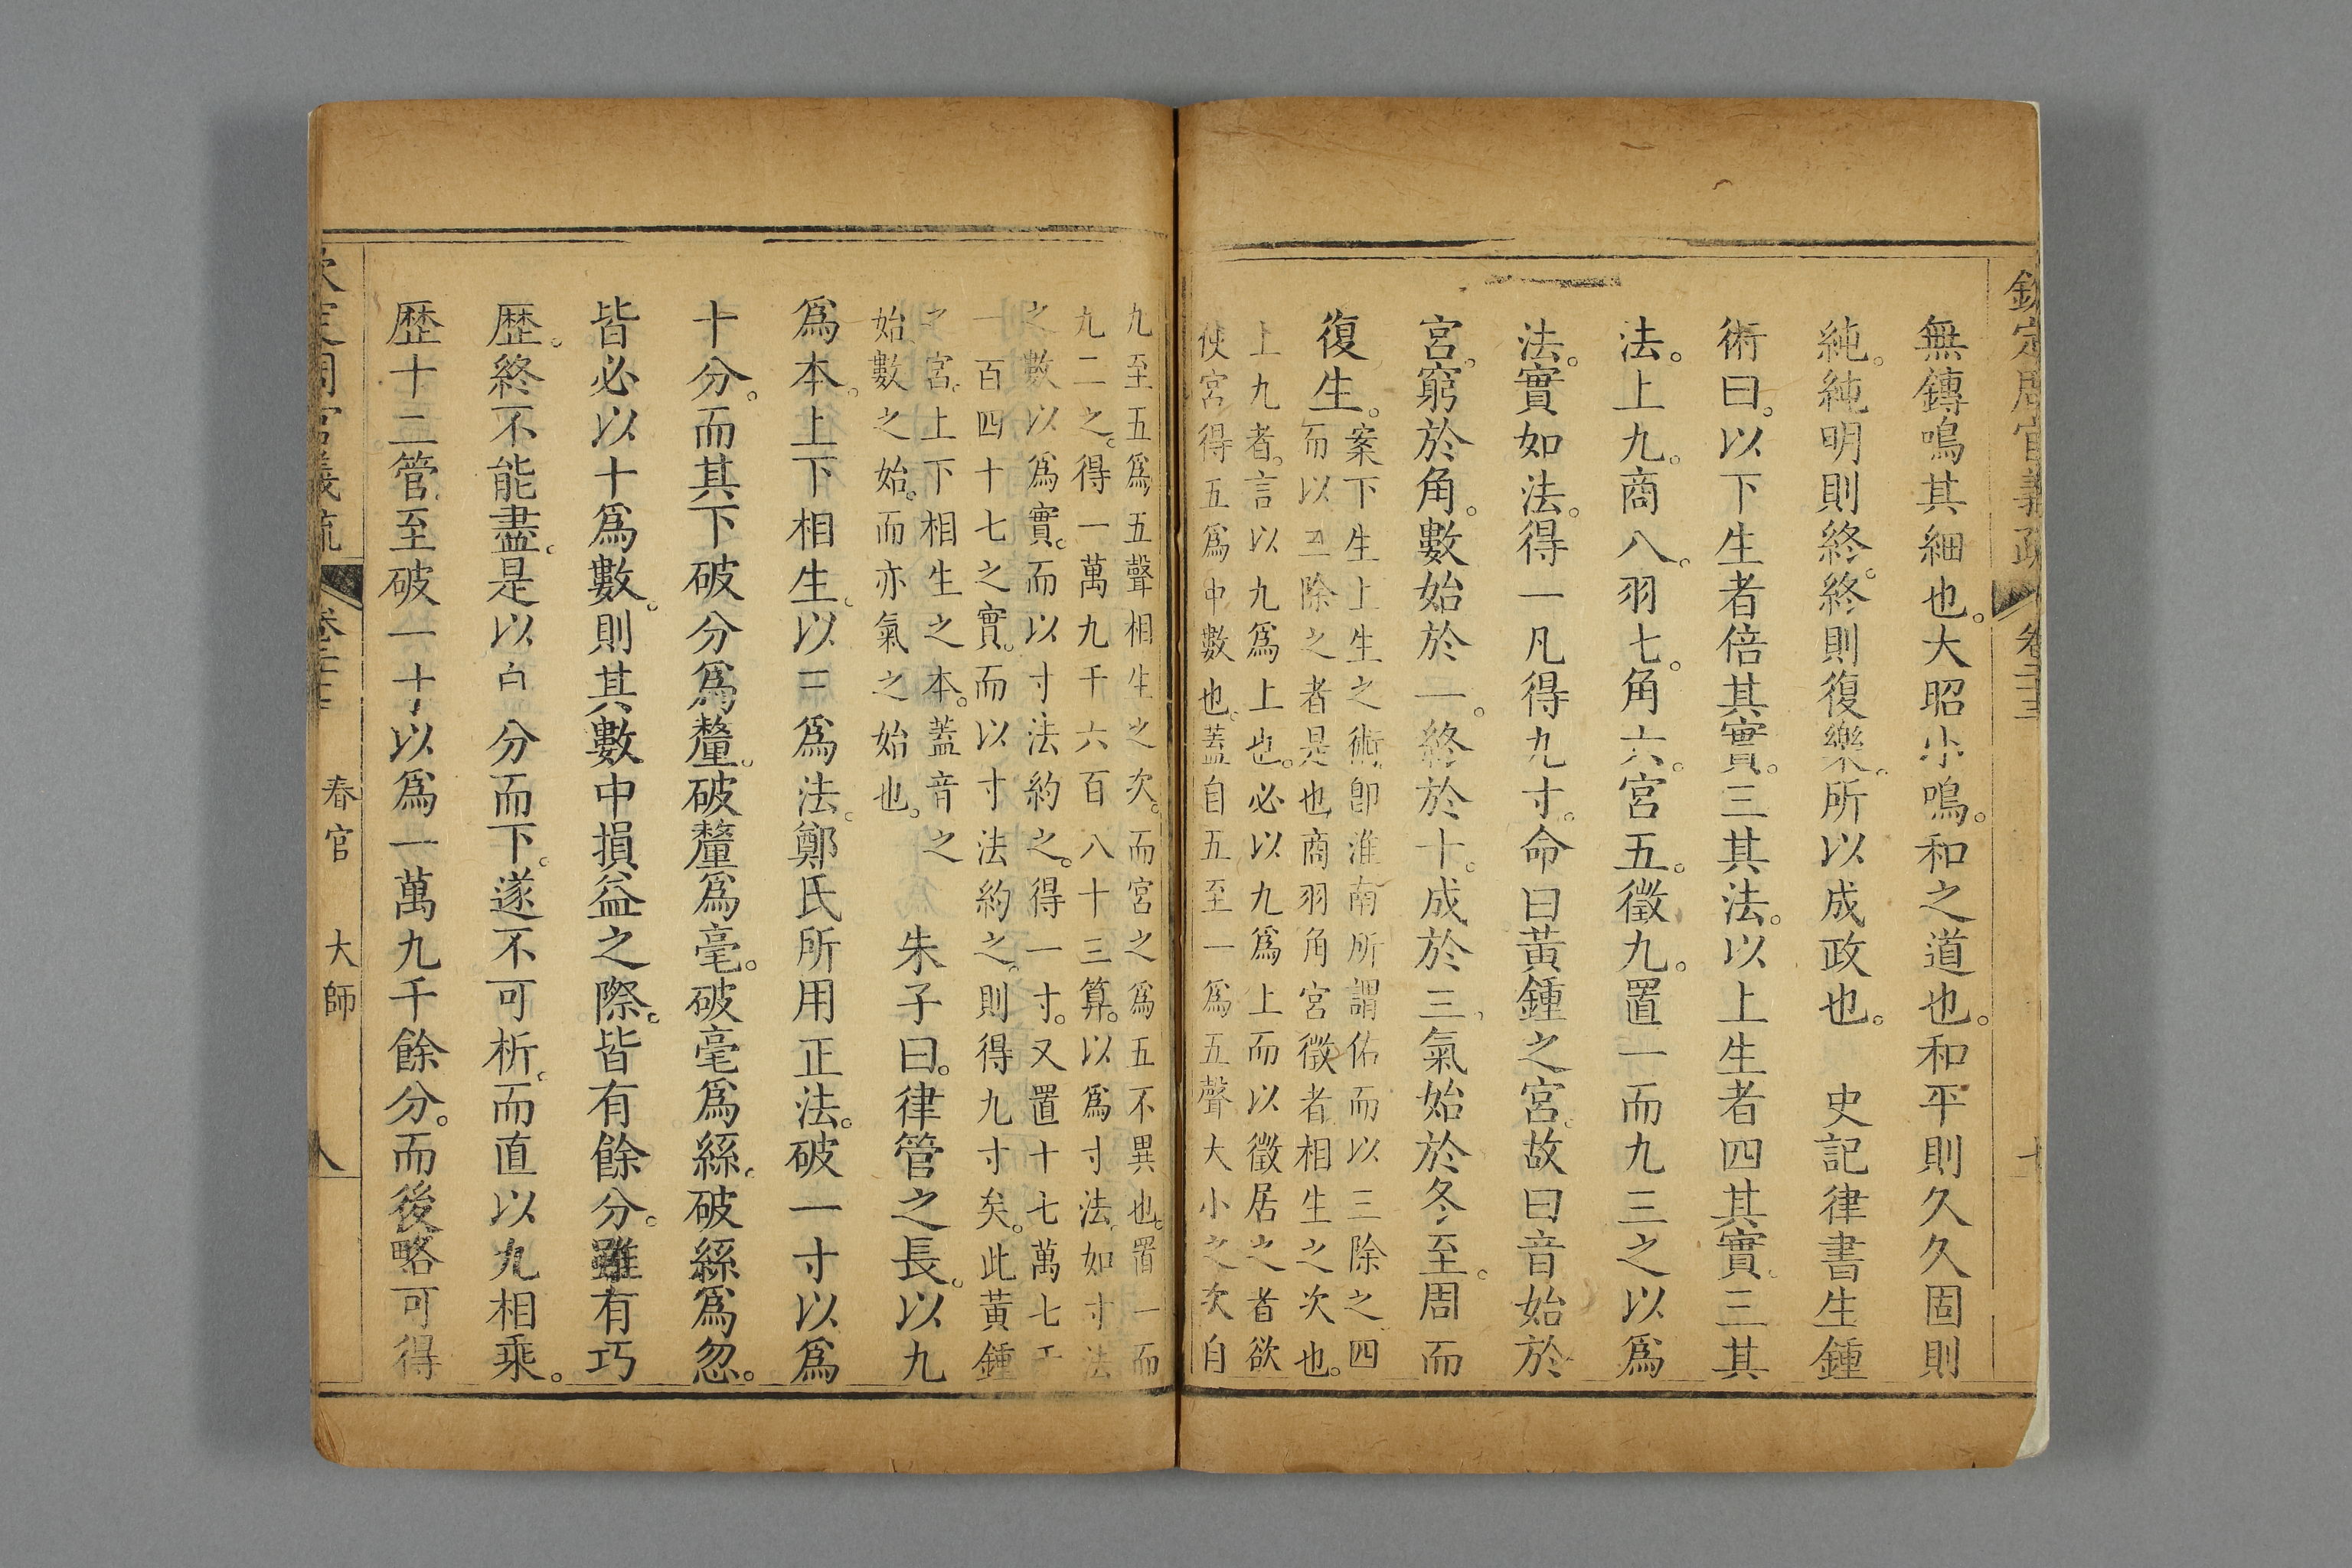 欽定周官義疏 卷二十三
無鏄鳴其細也。大昭小鳴。和之道也。和平則久久固則
純。純明則終。終則復樂。所以成政也。 史記律書生鍾
術曰。以下生者倍其實。三其法。以上生者四其實。三其
法。上九。商八。羽七。角六。宮五。徵九。置一而九三之以爲
法。實如法。得一凡得九寸。命曰黃鍾之宮。故曰音始於
宮。窮於角。數始於一。終於十。成於三。氣始於冬至。周而
復生。
案下生上生之術。卽淮南所謂佑而以三除之四
而以三除之者是也商羽角宮徵者相生之次也。
上九者。言以九爲上也。必以九爲上而以徵居之者欲
使宮得五爲中數也。蓋自五至一爲五聲大小之次自
九至五爲五聲相生之次。而宮之爲五不異也。置一而
九二之。得一萬九千六百八十三算。以爲寸法。如寸法
之數以爲實。而以寸法約之。得一寸。又置十七萬七千
一百四十七之實。而以寸法約之。則得九寸矣。此黃鍾
之宮。上下相生之本。蓋音之
始。數之始。而亦氣之始也。
朱子曰。律管之長。以九
爲本。上下相生。以三爲法。鄭氏所用正法。破一寸以爲
十分。而其下破分爲釐。破釐爲毫。破毫爲絲。破絲爲忽。
皆必以十爲數。則其數中損益之際。皆有餘分。雖有巧
歷。終不能盡。是以自分而下。遂不可析。而直以九相乘。
歷十二管。至破一寸以爲一萬九千餘分。而後略可得
欽定周官義疏 卷二十三 春官 大師